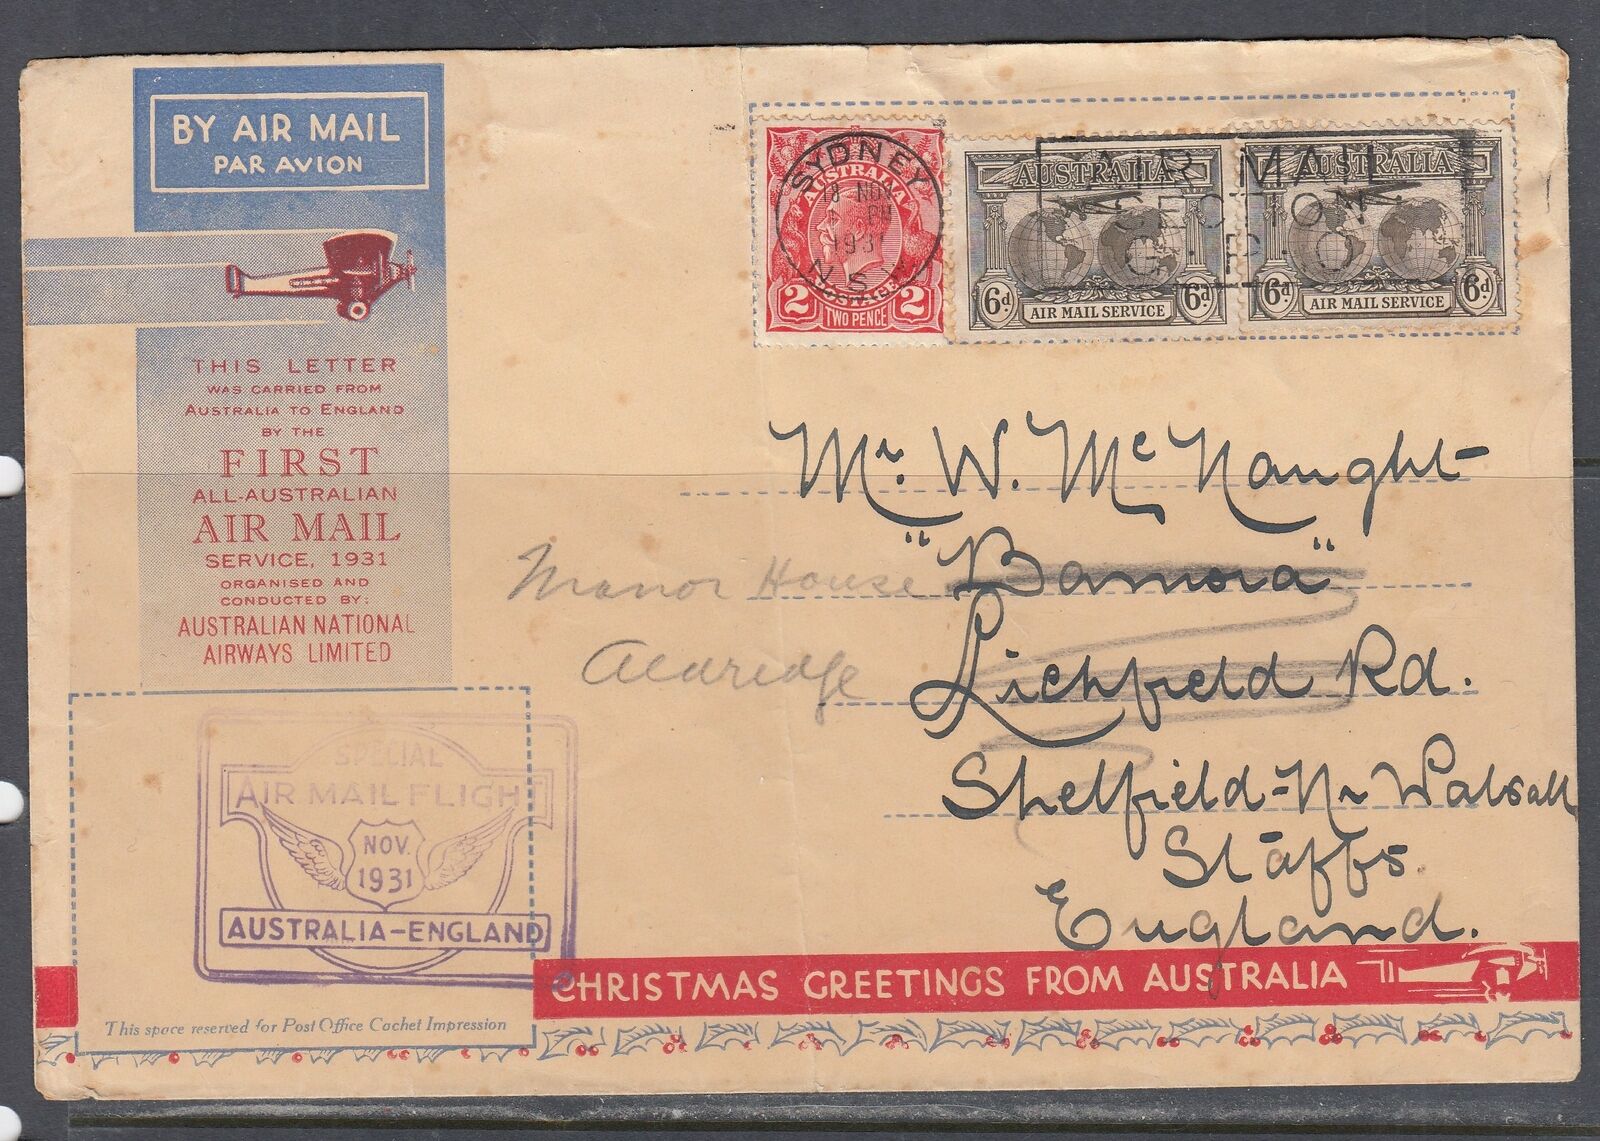 BY AIR MAIL
PAR AVION
THIS LETTER
WAS CARRIED FROM
AUSTRALIA TO ENGLAND
BY THE
FIRST
ALL-AUSTRALIAN
AIR MAIL
SERVICE, 1931
ORGANISED AND
CONDUCTED BY:
AUSTRALIAN NATIONAL
AIRWAYS LIMITED
SYDNEY
18 NOV
PM
1931
N.S.W
AUSTRALIA
POSTAGE
2 2
TWO PENCE
AIR MAIL
SECTION
G.P.O
AUSTRALIA
6d 6d
AIR MAIL SERVICE
AUSTRALIA
6d 6d
AIR MAIL SERVICE
Mr. W. McNaught
"Bamora"
Lichfield Rd.
Shelfield-Nr Walsall
Staffs
England.
Manor House
Aldridge
SPECIAL
AIR MAIL FLIGHT
NOV.
1931
AUSTRALIA-ENGLAND
CHRISTMAS GREETINGS FROM AUSTRALIA
This space reserved for Post Office Cachet Impression